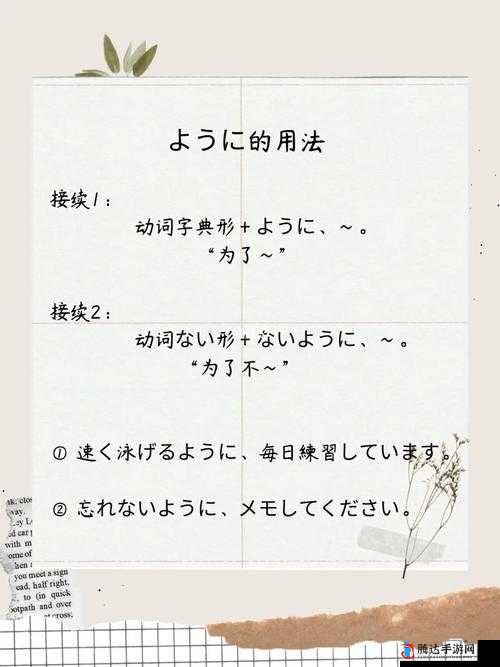 ように的用法
接续1：
动词字典形＋ように、～。
“为了～”
接续2：
动词ない形＋ないように、～。
“为了不～”
① 速く泳げるように、毎日練習しています。
② 忘れないように、メモしてください。
way.
with m
come of
you meet a sign
ead, half right,
to (in quick
ootpath and over
腾达手游网